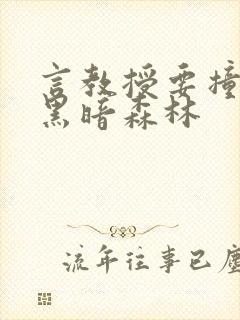 言教授要撞
黑暗森林
流年往事已塵